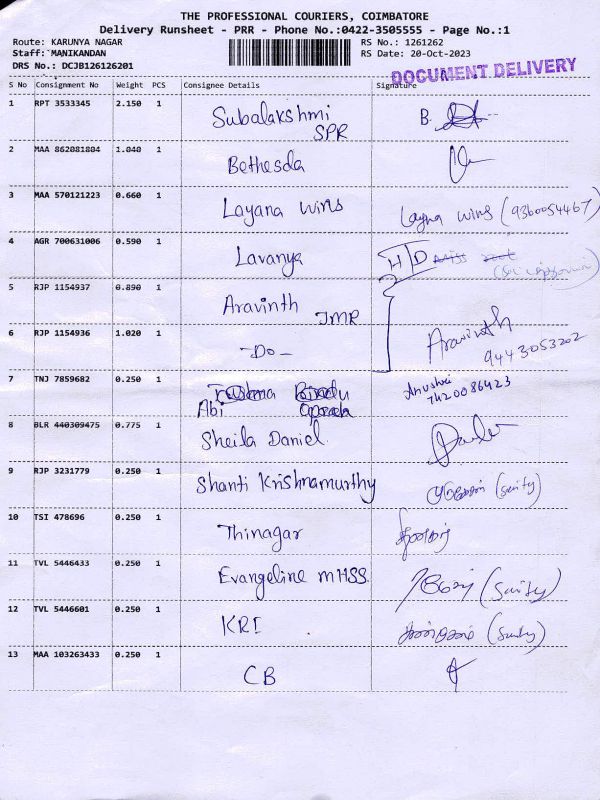 THE PROFESSIONAL COURIERS, COIMBATORE
Delivery Runsheet - PRR - Phone No.:0422-3505555 - Page No.:1
Route: KARUNYA NAGAR RS No.: 1261262
Staff: MANIKANDAN RS Date: 20-Oct-2023
DRS No.: DCJB126126201
DOCUMENT DELIVERY
S No Consignment No Weight PCS Consignee Details Signature
1 RPT 3533345 2.150 1 Subalakshmi B.
SPR
2 MAA 862081804 1.040 1 Bethesda
3 MAA 570121223 0.660 1 Layana wins Layna wins (9360054467)
4 AGR 700631006 0.590 1 Lavanya H/D Miss
5 RJP 1154937 0.890 1 Aravinth
JMR
6 RJP 1154936 1.020 1 -Do- Aravinth
9443053202
7 TNJ 7859682 0.250 1 Bindu
Abi 7420086423
8 BLR 440309475 0.775 1 Sheila Daniel
9 RJP 3231779 0.250 1 Shanti Krishnamurthy (Surity)
10 TSI 478696 0.250 1 Thinagar தினகர்
11 TVL 5446433 0.250 1 Evangeline MHSS (Surity)
12 TVL 5446601 0.250 1 KRI (Surity)
13 MAA 103263433 0.250 1 CB